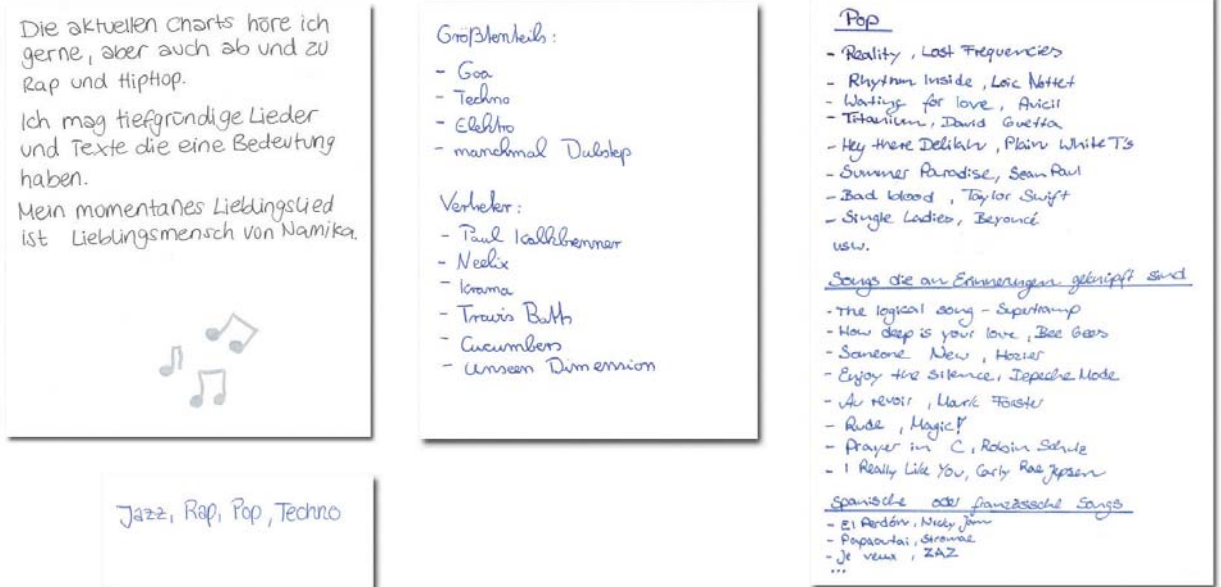 Die aktuellen Charts höre ich
gerne, aber auch ab und zu
Rap und HipHop.
Ich mag tiefgründige Lieder
und Texte die eine Bedeutung
haben.
Mein momentanes Lieblingslied
ist Lieblingsmensch von Namika.
Größtenteils:
- Goa
- Techno
- Elektro
- manchmal Dubstep
Vertreter:
- Paul Kalkbrenner
- Neelix
- Krama
- Travis Buth
- Cucumbers
- Unseen Dimension
Jazz, Rap, Pop, Techno
Pop
- Reality, Lost Frequencies
- Rhythm Inside, Loic Nottet
- Waiting for love, Avicii
- Titanium, David Guetta
- Hey there Delilah, Plain White T's
- Summer Paradise, Sean Paul
- Bad blood, Taylor Swift
- Single Ladies, Beyoncé
usw.
Songs die an Erinnerungen geknüpft sind
- The logical song - Supertramp
- How deep is your love, Bee Gees
- Someone New, Hozier
- Enjoy the silence, Depeche Mode
- Au revoir, Mark Forster
- Rude, Magic!
- Prayer in C, Robin Schulz
- I Really Like You, Carly Rae Jepsen
Spanische oder französische Songs
- El Perdón, Nicky Jam
- Papaoutai, Stromae
- Je veux, ZAZ
...